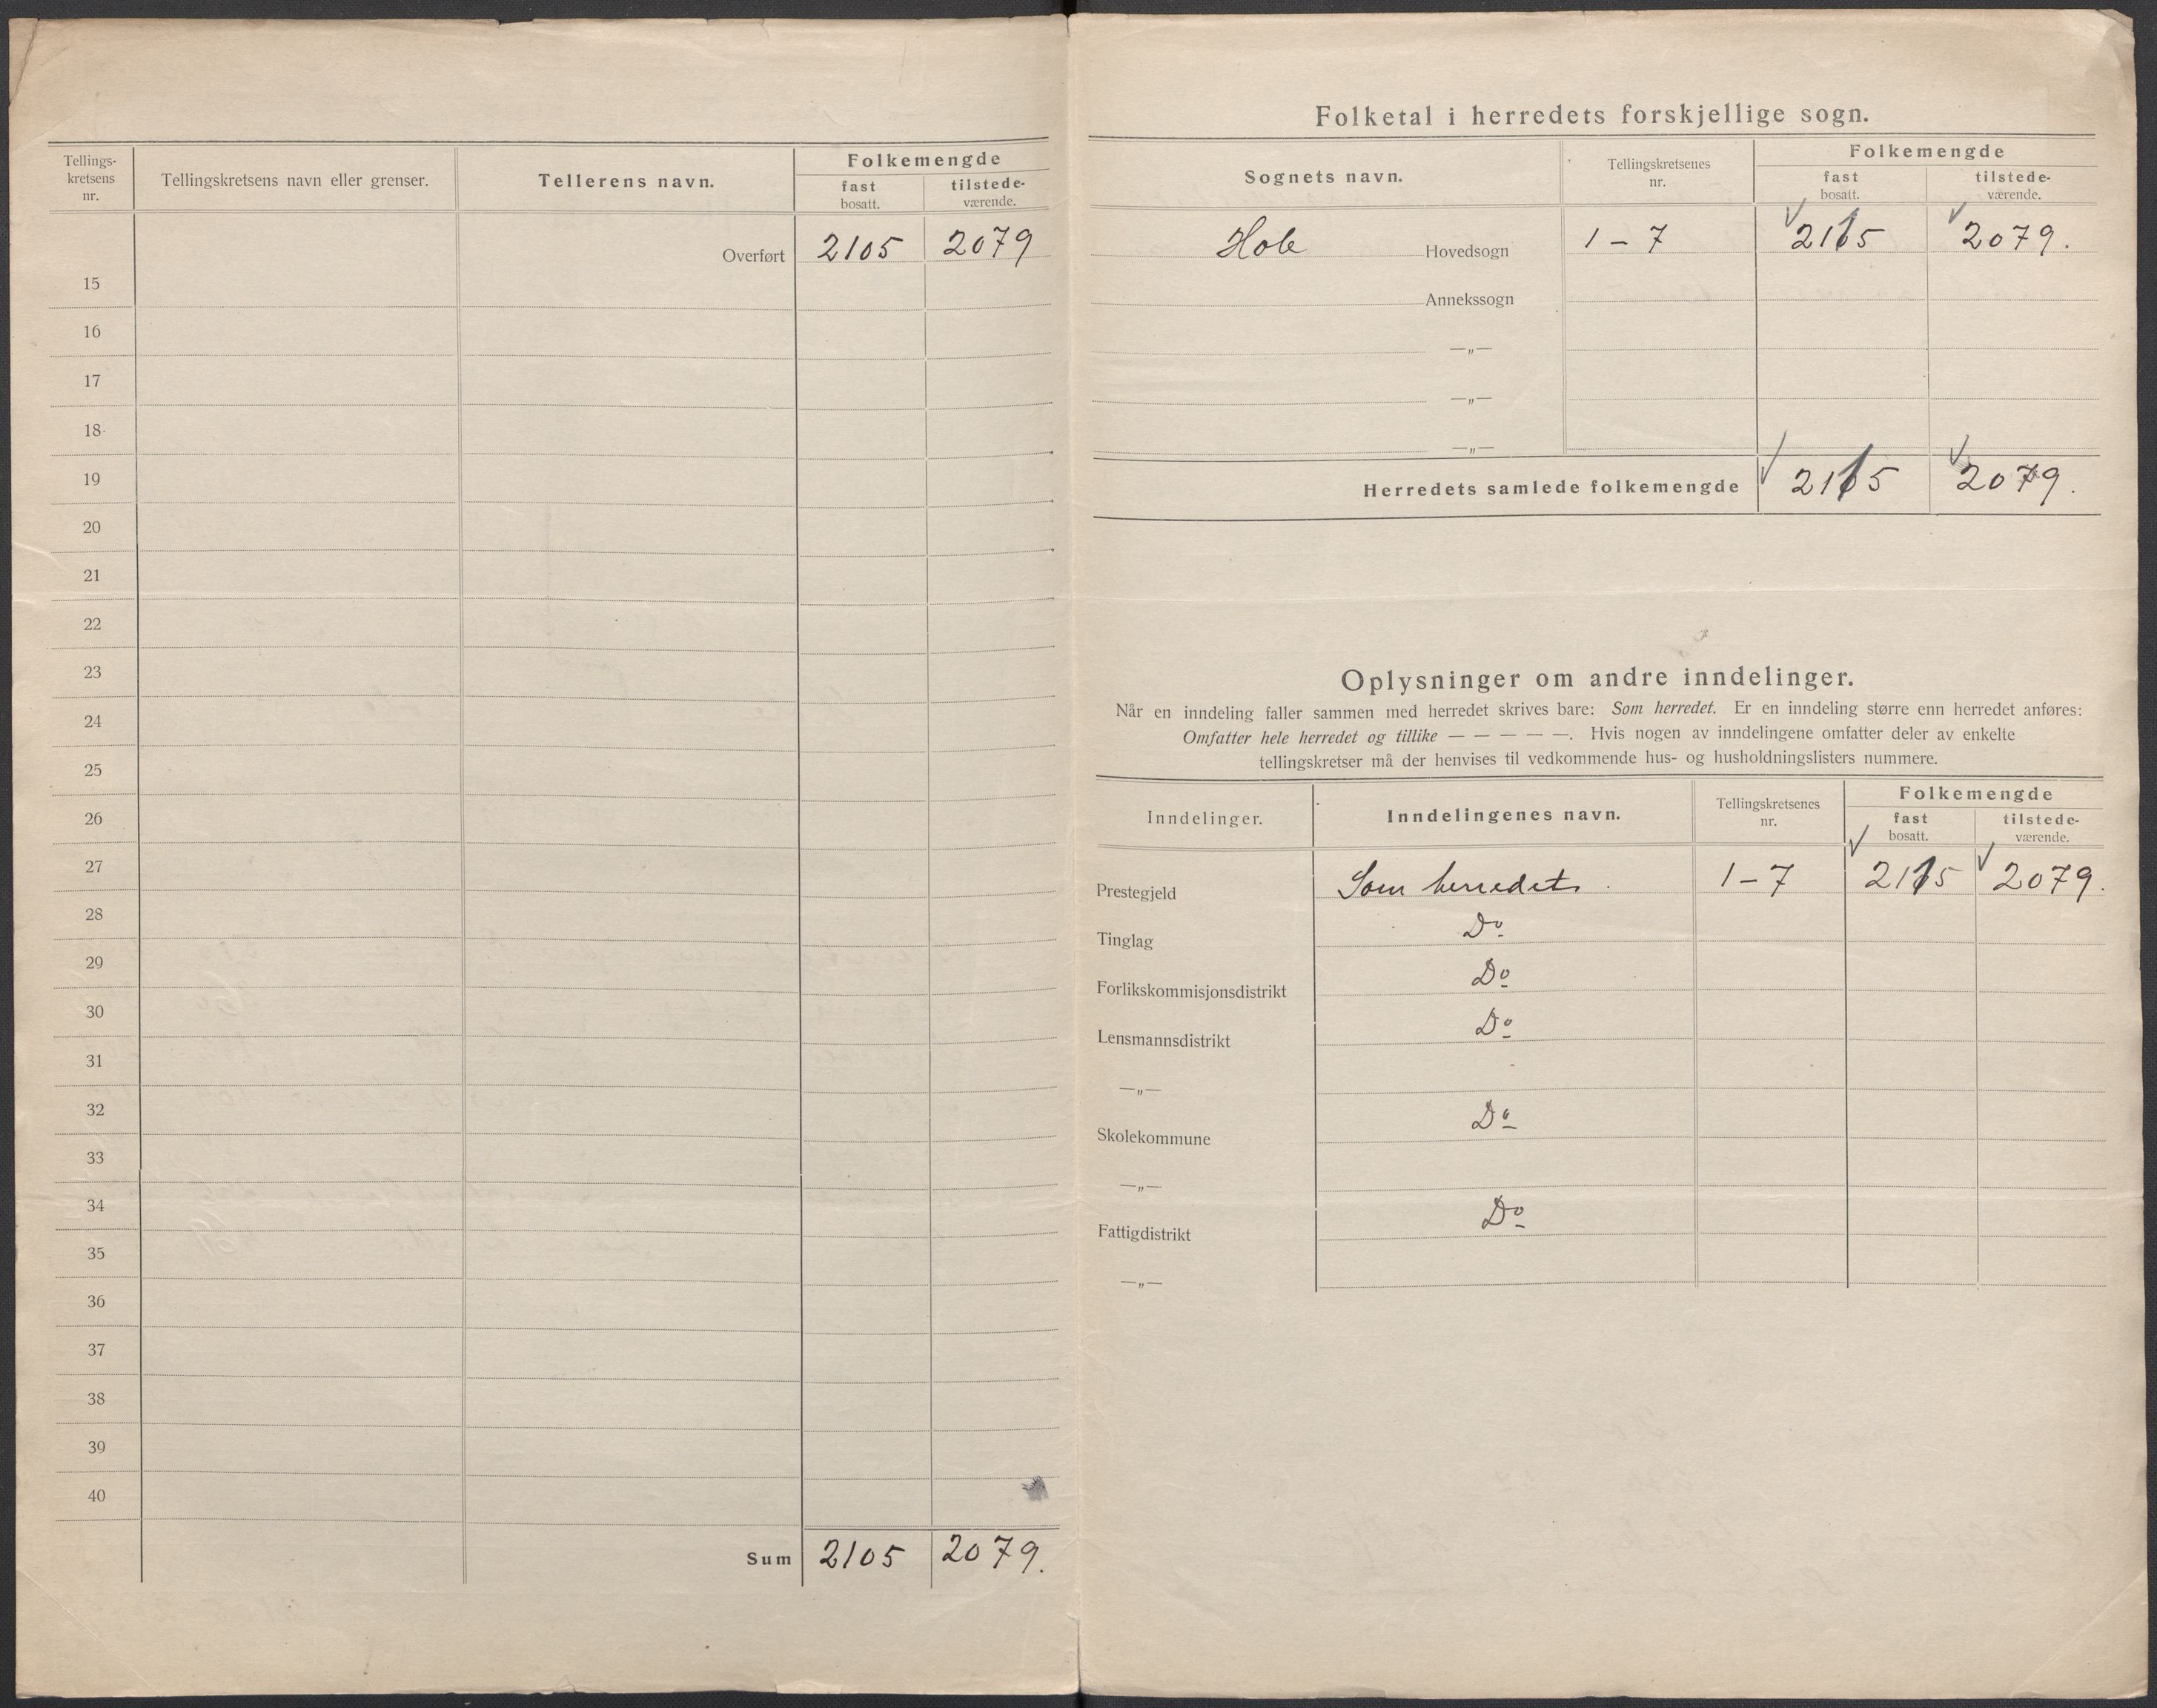 Tellings-
kretsens
nr.
Tellingskretsens navn eller grenser.
Tellerens navn.
Folkemengde
fast
bosatt.
tilstede-
værende.
Overført 2105 2079
15
16
17
18
19
20
21
22
23
24
25
26
27
28
29
30
31
32
33
34
35
36
37
38
39
40
Sum 2105 2079.
Folketal i herredets forskjellige sogn.
Sognets navn.
Tellingskretsenes
nr.
Folkemengde
fast
bosatt.
tilstede-
værende.
Hole Hovedsogn 1-7 2115 2079.
Annekssogn
—„—
—„—
—„—
Herredets samlede folkemengde 2115 2079.
Oplysninger om andre inndelinger.
Når en inndeling faller sammen med herredet skrives bare: Som herredet. Er en inndeling større enn herredet anføres:
Omfatter hele herredet og tillike — — — — —. Hvis nogen av inndelingene omfatter deler av enkelte
tellingskretser må der henvises til vedkommende hus- og husholdningslisters nummere.
Inndelinger.
Inndelingenes navn.
Tellingskretsenes
nr.
Folkemengde
fast
bosatt.
tilstede-
værende.
Prestegjeld Som herredet. 1-7 2115 2079.
Tinglag Do
Forlikskommisjonsdistrikt Do
Lensmannsdistrikt Do
—„—
Skolekommune Do
—„—
Fattigdistrikt Do
—„—